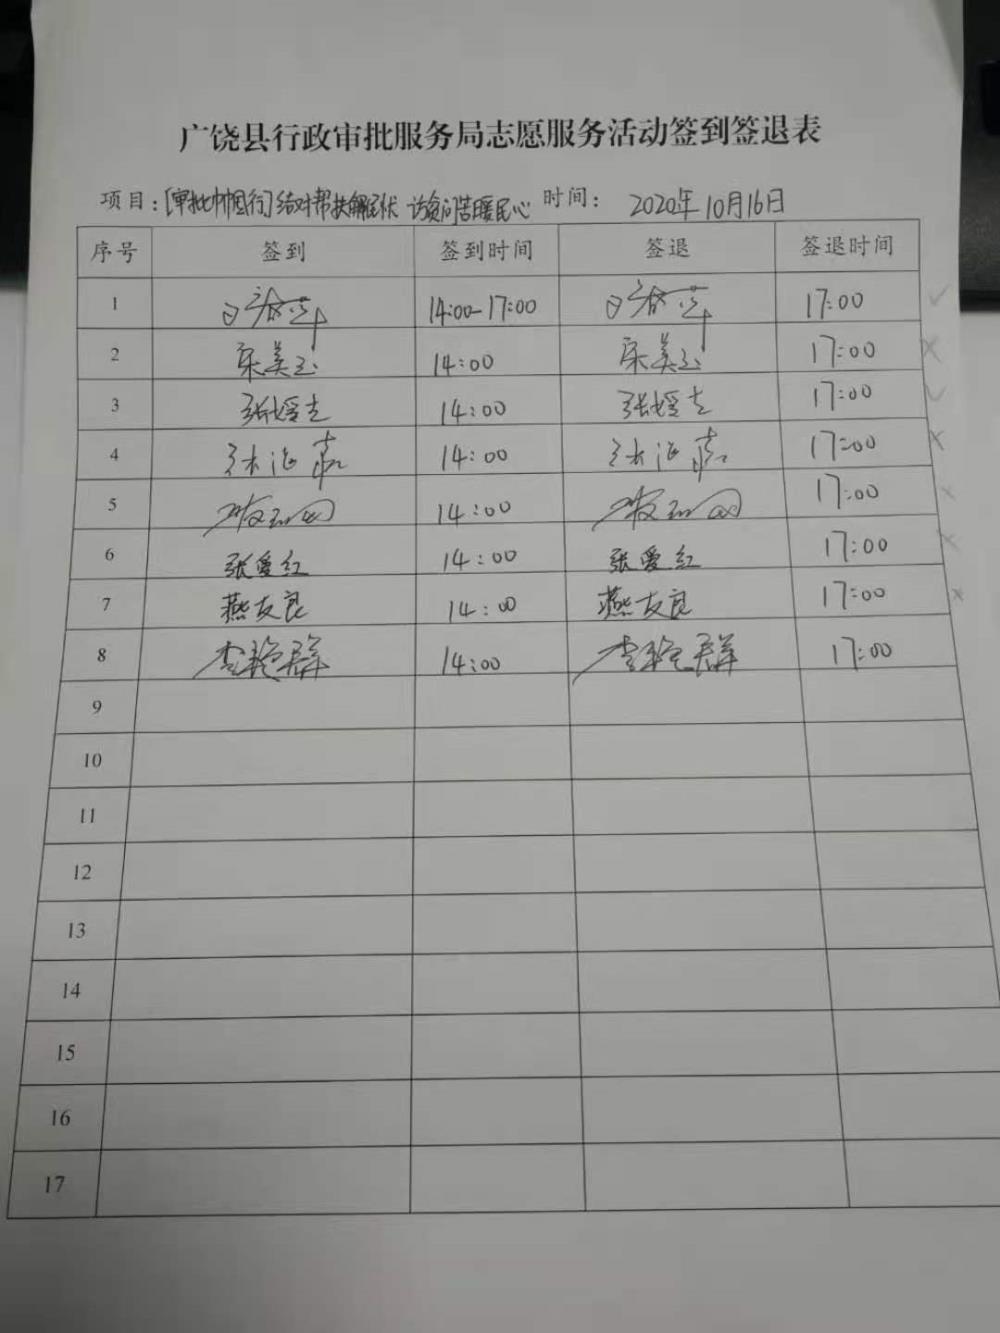 广饶县行政审批服务局志愿服务活动签到签退表
项目:[审批巾帼行]结对帮扶解民忧 访贫问苦暖民心 时间: 2020年10月16日
序号 签到 签到时间 签退 签退时间
1 14:00-17:00 17:00
2 宋美玉 14:00 宋美玉 17:00
3 14:00 17:00
4 14:00 17:00
5 14:00 17:00
6 张爱红 14:00 张爱红 17:00
7 燕友良 14:00 燕友良 17:00
8 李艳群 14:00 李艳群 17:00
9
10
11
12
13
14
15
16
17